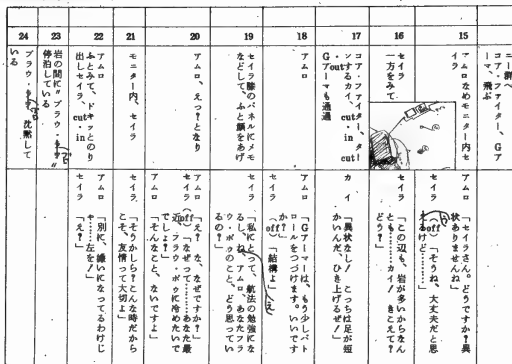 ニー群へ
コア・ファイター、Gア
ーマ、飛ぶ
15
アムロなめモニター内セ
イラ
アムロ「セイラさん。どうですか？異
状ありませんね」
セイラ「そうね、大丈夫だと思
(off)
えるけど………」
16
セイラ
一方をみて
セイラ「この辺も、岩が多いからなん
とも………カイ！きこえて？
どう？」
17
コア・ファイター、ター
ンするカイ、cut・in
・cut
out
Gアーマも通過
カイ「異状なし！こっちは足が短
かいんだ、ひき上げるぜ！」
18
アムロ
アムロ「Gアーマーは、もう少しパト
ロールをつづけます。いいです
か？」
セイラ「結構よ」
(off)
19
セイラ膝のパネルにメモ
などして、ふと顔をあげ
る
セイラ「私にとって、航法の勉強にな
るしね。アムロ、あなたフラ
ウ・ボゥのこと、どう思ってい
るの？」
20
アムロ、えっ？となり
アムロ「え？な、なぜですか？」
セイラ「なぜって………あなた最
(off)
近、フラウ・ボゥに冷めたいで
しょ？」
アムロ「そんなこと、ないですよ」
21
モニター内、セイラ
セイラ「そうかしら？こんな時だから
こそ、友情って大切よ」
22
アムロ
ふとみて、ドキッとのり
出しセイラ、cut・in
アムロ「別に、嫌いになってるわけじ
ゃ……左を！」
セイラ「え？」
23
岩の間に〝ブラウ・
停泊している
24
ブラウ・
沈黙して
いる